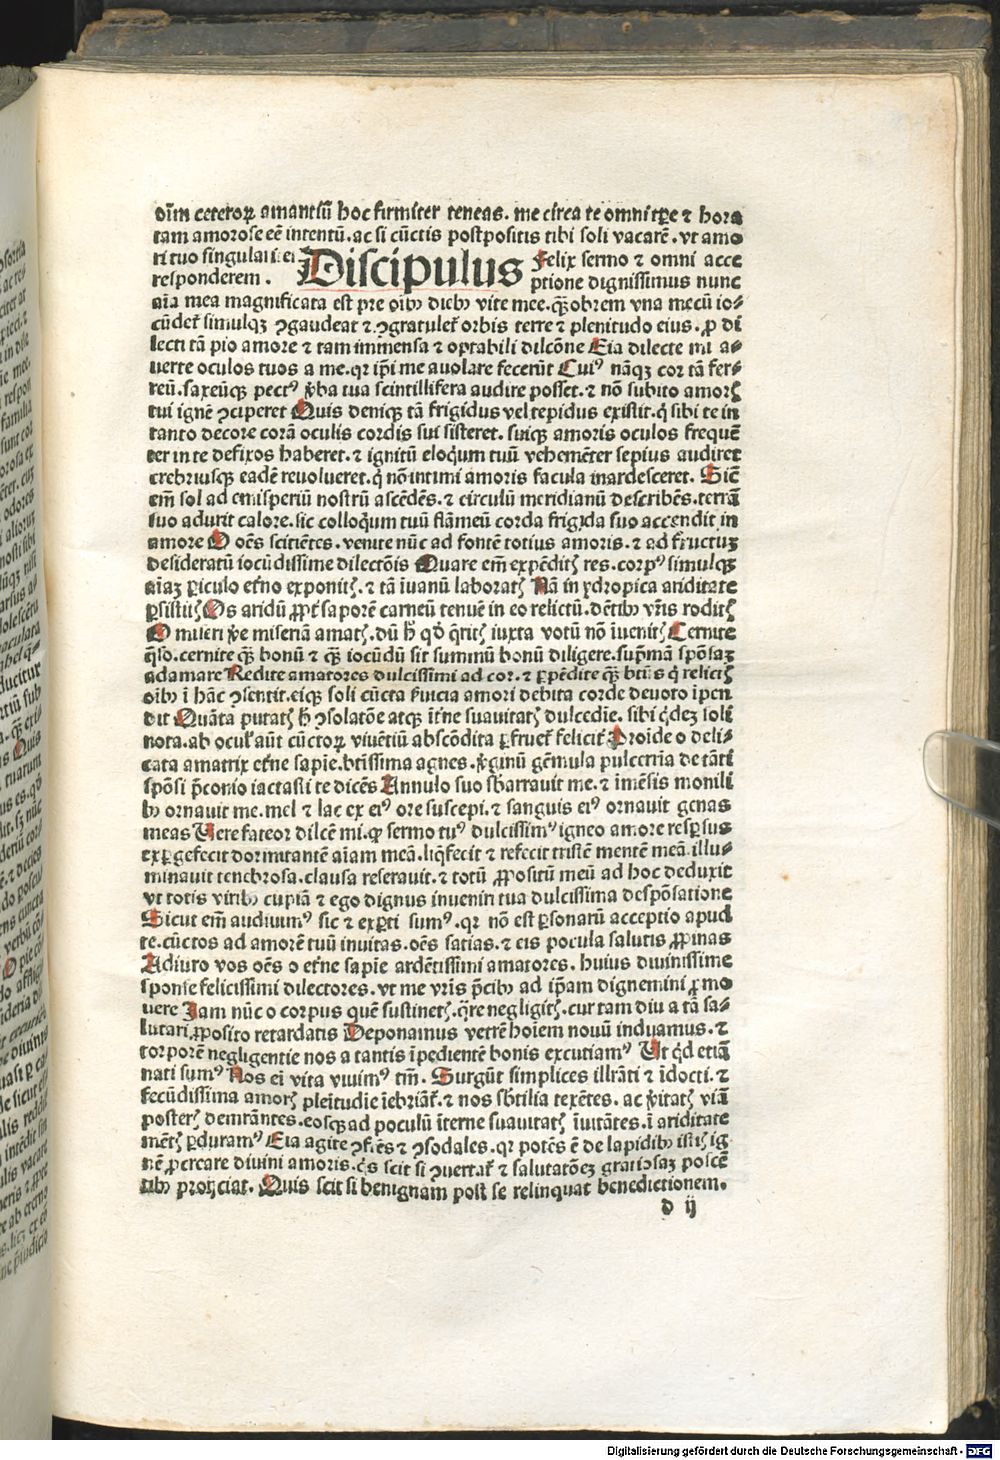 dīm ceteroꝝ amantiū hoc firmiter teneas. me circa te omni tꝑe ⁊ hora
tam amorose eē intentū. ac si cūctis postpositis tibi soli vacarē. vt amo
ri tuo singulari ei
responderem.
Discipulus
Felix sermo ⁊ omni acce
ptione dignissimus nunc
aīa mea magnificata est pre oībꝫ diebꝫ vite mee. qꝫobrem vna mecū io⸗
cūdet᷑ simulqꝫ ꝯgaudeat ⁊ ꝯgratulet᷑ orbis terre ⁊ plenitudo eius. ꝓ di
lecti tā pio amore ⁊ tam immensa ⁊ optabili dilcōne Eia dilecte mi a⸗
uerte oculos tuos a me. qꝛ ip̄i me auolare fecerūt Cuiꝰ nāqꝫ cor tā fer⸗
reū. saxeūqꝫ pectꝰ v̄ba tua scintillifera audire posset. ⁊ nō subito amorꝭ
tui ignē ꝯciperet Quis deniqꝫ tā frigidus vel tepidus existit. q̇ sibi te in
tanto decore corā oculis cordis sui sisteret. suiqꝫ amoris oculos frequē
ter in te defixos haberet. ⁊ ignitū eloq̇um tuū vehemēter sepius audiret
crebriusqꝫ eadē reuolueret. q̇ nō intimi amoris facula inardesceret. Sic̄
em̄ sol ad emisperiū nostrū ascēdēs. ⁊ circulū meridianū describēs. terrā
suo adurit calore. sic colloq̇um tuū flāmeū corda frigida suo accendit in
amore O oēs scitiētes. venite nūc ad fontē totius amoris. ⁊ ad fructuꝫ
desideratū iocūdissime dilectōis Quare em̄ expēditꝭ res. corpꝰ simulqꝫ
aīaꝫ ꝑiculo et̄no exponitꝭ. ⁊ tā īuanū laboratꝭ Nā in ydropica ariditate
ꝑsistitꝭ Os aridū ꝓpt̄ saporē carneū tenuē in eo relictū. dētibꝫ vr̄is roditꝭ
O miseri v̄e miseriā amatꝭ. dū h̄ qd̄ q̄ritꝭ iuxta votū nō īuenitꝭ Cernite
q̄so. cernite qꝫ bonū ⁊ qꝫ iocūdū sit summū bonū diligere. sup̄mā spōsaꝫ
adamare Redite amatores dulcissimi ad cor. ⁊ ꝑpēdite qꝫ bt̄us q̇ relictꝭ
oībꝫ ī hāc ꝯsentit. eiqꝫ soli cūcta s̄uicia amori debita corde deuoto īpen
dit Quāta putatꝭ h̄ ꝯsolatōe atqꝫ īt̄ne suauitatꝭ dulcedīe. sibi q̇deꝫ soli
nota. ab ocul᷑ aūt cūctoꝝ viuētiū abscōdita ꝑfruet᷑ felicit᷑ Proīde o deli⸗
cata amatrix et̄ne sapīe. bt̄issima agnes. v̄ginū gēmula pulcerria de tāti
spōsi p̄conio iactasti te dicēs Annulo suo sbarrauit me. ⁊ īmēsis monili
bꝫ ornauit me. mel ⁊ lac ex eiꝰ ore suscepi. ⁊ sanguis eiꝰ ornauit genas
meas Uere fateor dilcē mi. qꝫ sermo tuꝰ dulcissimꝰ igneo amore respsus
exꝑgefecit dormitantē aīam meā. liq̄fecit ⁊ refecit tristē mentē meā. illu⸗
minauit tenebrosa. clausa reserauit. ⁊ totū ꝓpositū meū ad hoc deduxit
vt totis viribꝫ cupiā ⁊ ego dignus inueniri tua dulcissima despōsatione
Sicut em̄ audiuimꝰ sic ⁊ exꝑti sumꝰ. qꝛ nō est ꝑsonarū acceptio apud
te. cūctos ad amorē tuū inuitas. oēs satias. ⁊ eis pocula salutis ꝓpinas
Adiuro vos oēs o et̄ne sapīe ardētissimi amatores. huius diuinissime
sponse felicissimi dilectores. vt me vr̄is p̄cibꝫ ad ip̄am dignemini ꝓmo
uere Jam nūc o corpus quē sustinetꝭ. q̄re negligitꝭ. cur tam diu a tā sa⸗
lutari ꝓposito retardatis Deponamus veterē hoīem nouū induamus. ⁊
torporē negligentie nos a tantis īpedientē bonis excutiamꝰ Ut q̇d etiā
nati sumꝰ Nos ei vita viuimꝰ tm̄. Surgūt simplices illr̄ati ⁊ īdocti. ⁊
fecūdissima amorꝭ pleitudīe īebriāt᷑. ⁊ nos sb̄tilia texētes. ac v̄itatꝭ viā
posterꝭ demr̄antes. eosqꝫ ad poculū īterne suauitatꝭ īuitātes. ī ariditate
mētꝭ ꝑduramꝰ Eia agite ꝯfr̄es ⁊ ꝯsodales. qꝛ potēs ē de lapidibꝫ istꝭ ig
nē ꝓcreare diuini amoris. q̇s scit si ꝯuertat᷑ ⁊ salutatōeꝫ gratiosaꝫ poscē
tibꝫ proijciat. Quis scit si benignam post se relinquat benedictionem.
d ij
Digitalisierung gefördert durch die Deutsche Forschungsgemeinschaft - DFG